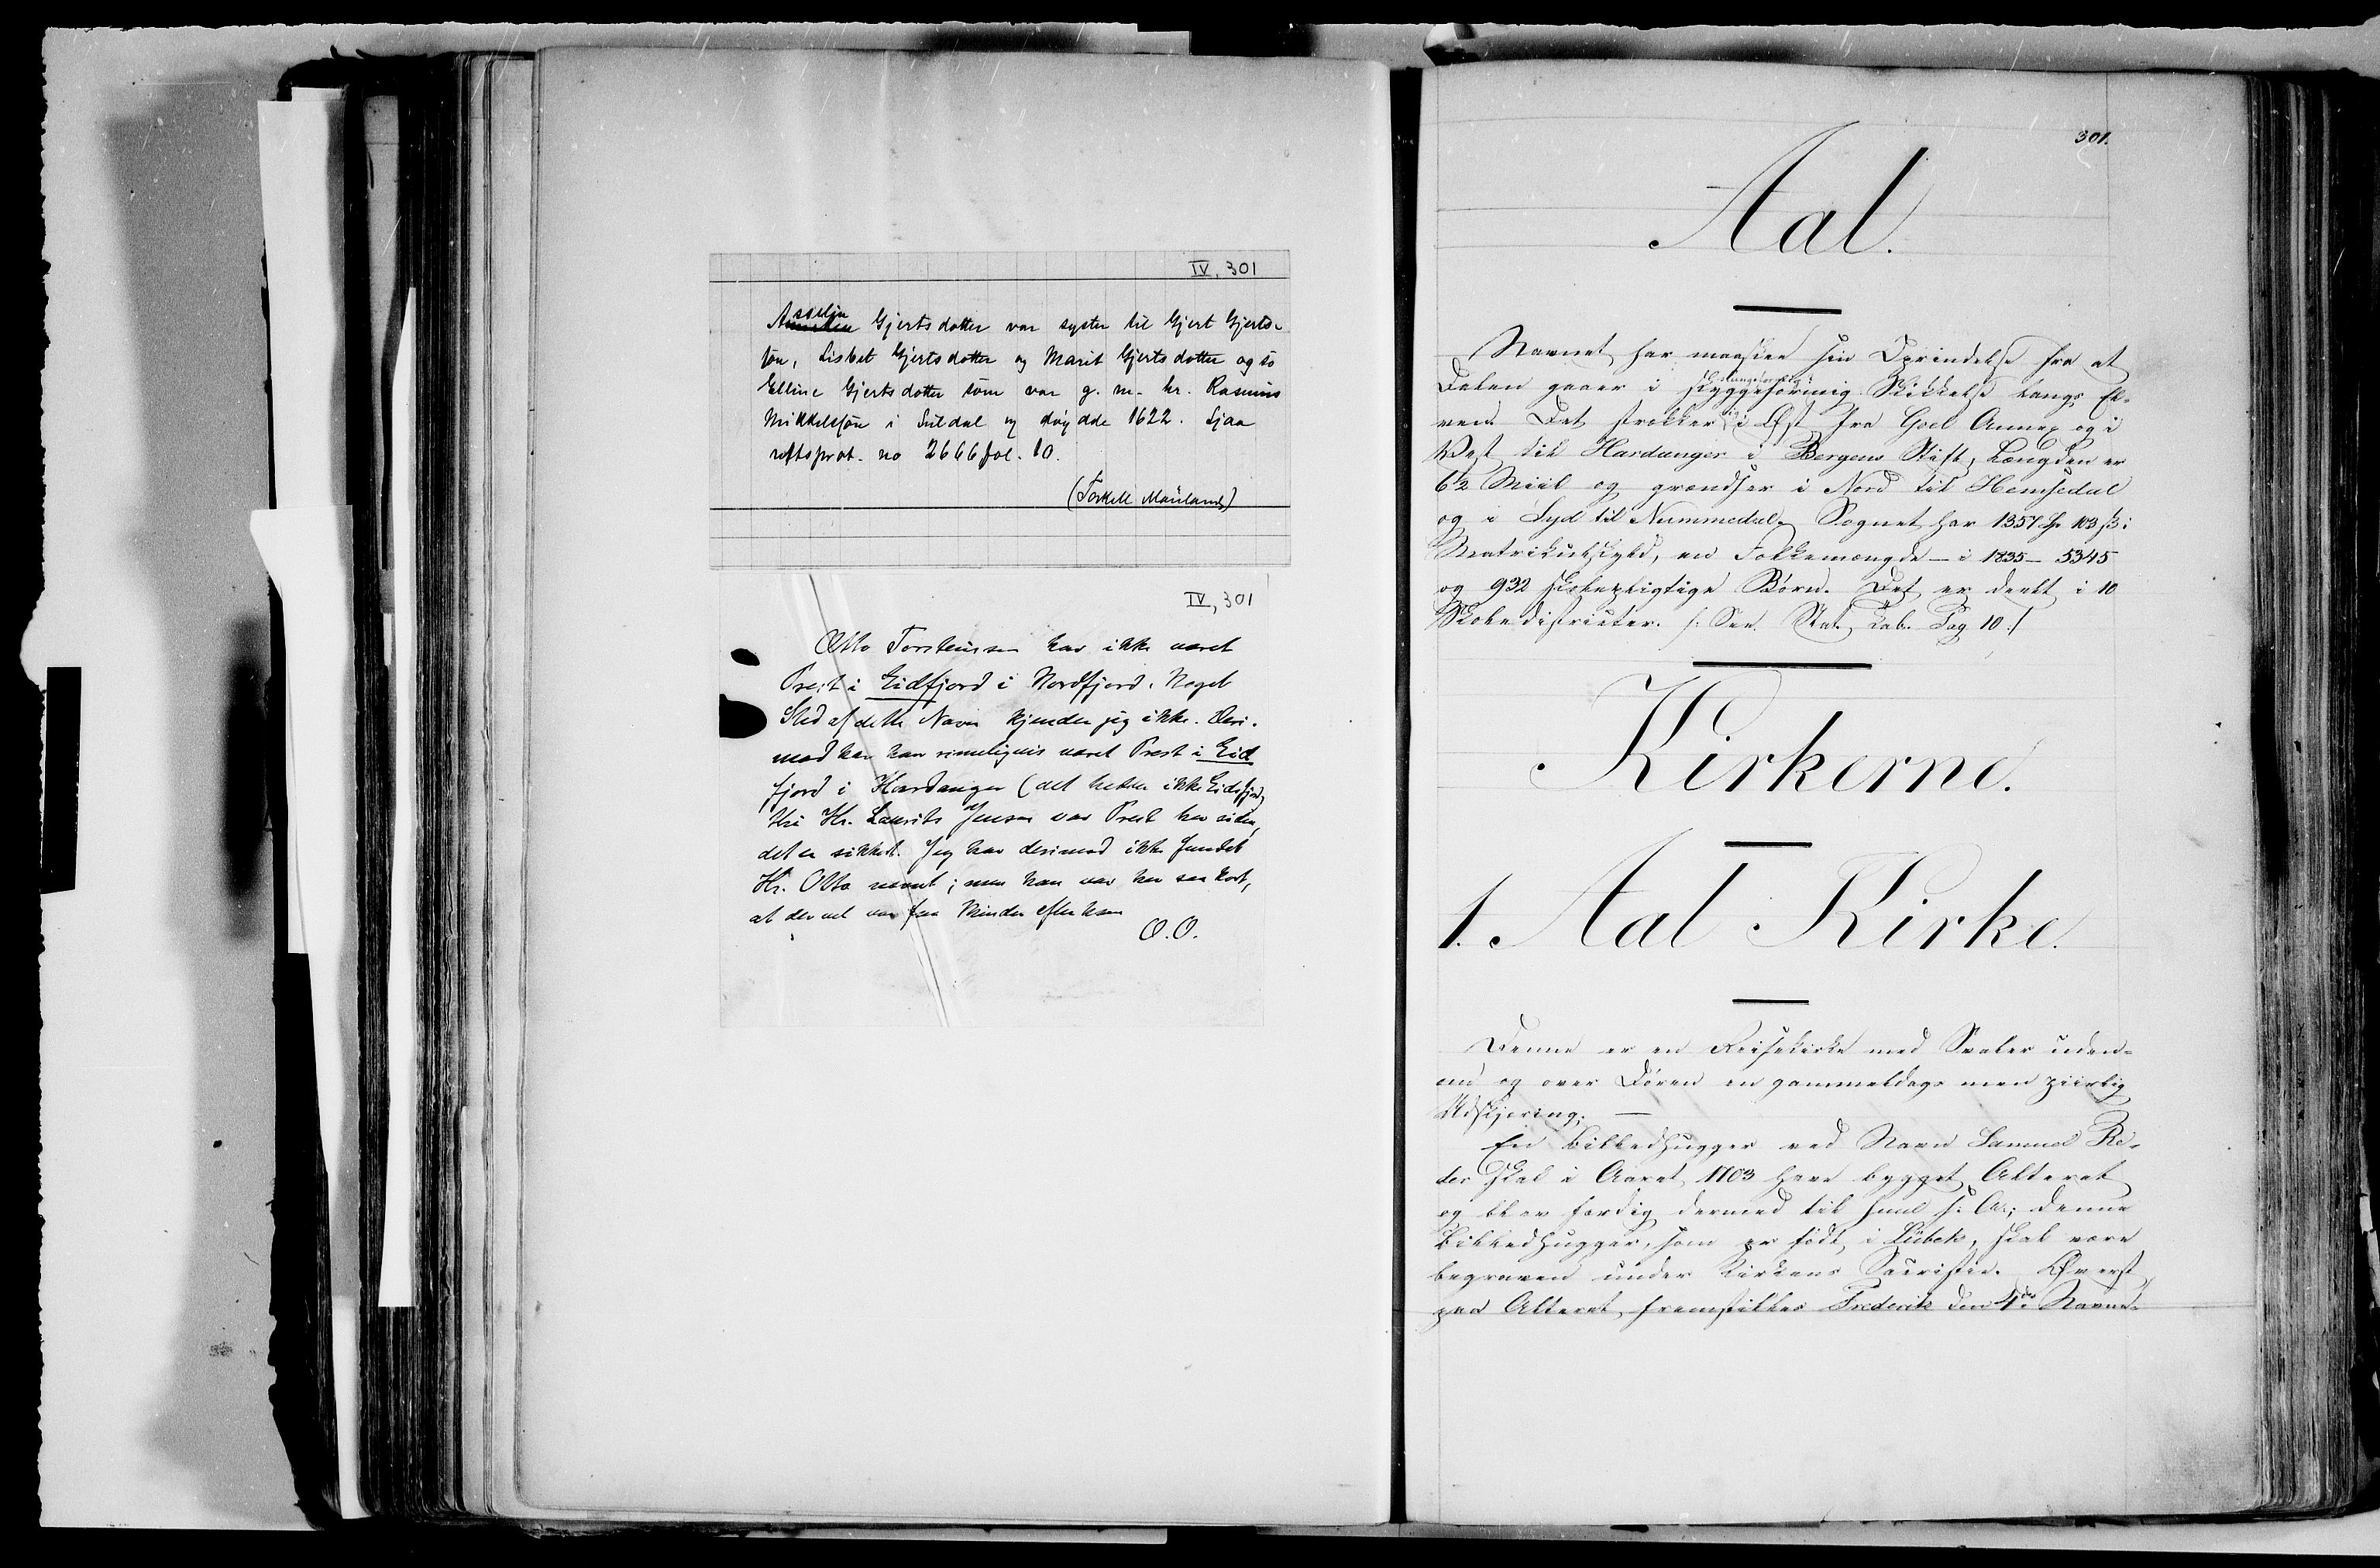 IV, 301
Asselin Gjertsdotter var syster til Gjert Gjerts-
søn, Lisbet Gjertsdotter og Marit Gjertsdotter og so
Elline Gjertsdotter som var g. m. hr. Rasmus
Mikkelsøn i Suldal og døydde 1622. Sjaa
rettsprot. no 2666 fol. 10.
(Torkell Mauland)
IV, 301
Otto Torsteinsen har ikke været
Prest i Eidfjord i Nordfjord. Noget
Sted af dette Navn kjender jeg ikke. Deri-
mod har han rimeligvis været Prest i Eid
fjord i Hardanger (det heder ikke Eidsfjord)
thi Hr. Laurits Jensen var Prest her siden,
det er sikkert. Jeg har derimod ikke fundet
Hr. Otto nævnt; men han var her saa kort,
at der vel var faa Minder efter ham
O. O.
301.
Aal.
Navnet har maaskee sin Oprindelse fra at
Dalen gaaer i slangeformig Skikkelse langs El-
ven. Det strækker sig i Øst fra Goel Annex og i
Vest til Hardanger i Bergens Stift, Længden er
6½ Miil og grændser i Nord til Hemsedal
og i Syd til Nummedal. Sognet har 1357 Sp 103 ß i
Matrikulskyld, en Folkemængde – i 1835 – 5345
og 932 skolepligtige Børn. Det er deelt i 10
Skoledistricter. /: See Stat. Tab. Pag 10 :/
Kirkerne.
1. Aal Kirke.
Denne er en Reisekirke med Svaler uden-
om og over Døren en gammeldags men ziirlig
Udskjering. —
En Billedhugger ved Navn Samuel Re-
der skal i Aaret 1703 have bygget Alteret
og blev færdig dermed til Juul s. A.; denne
Billedhugger, som er født i Lübek, skal være
begraven under Kirkens Sacristie. Øverst
paa Alteret fremstilles Frederik den 4des Navne-